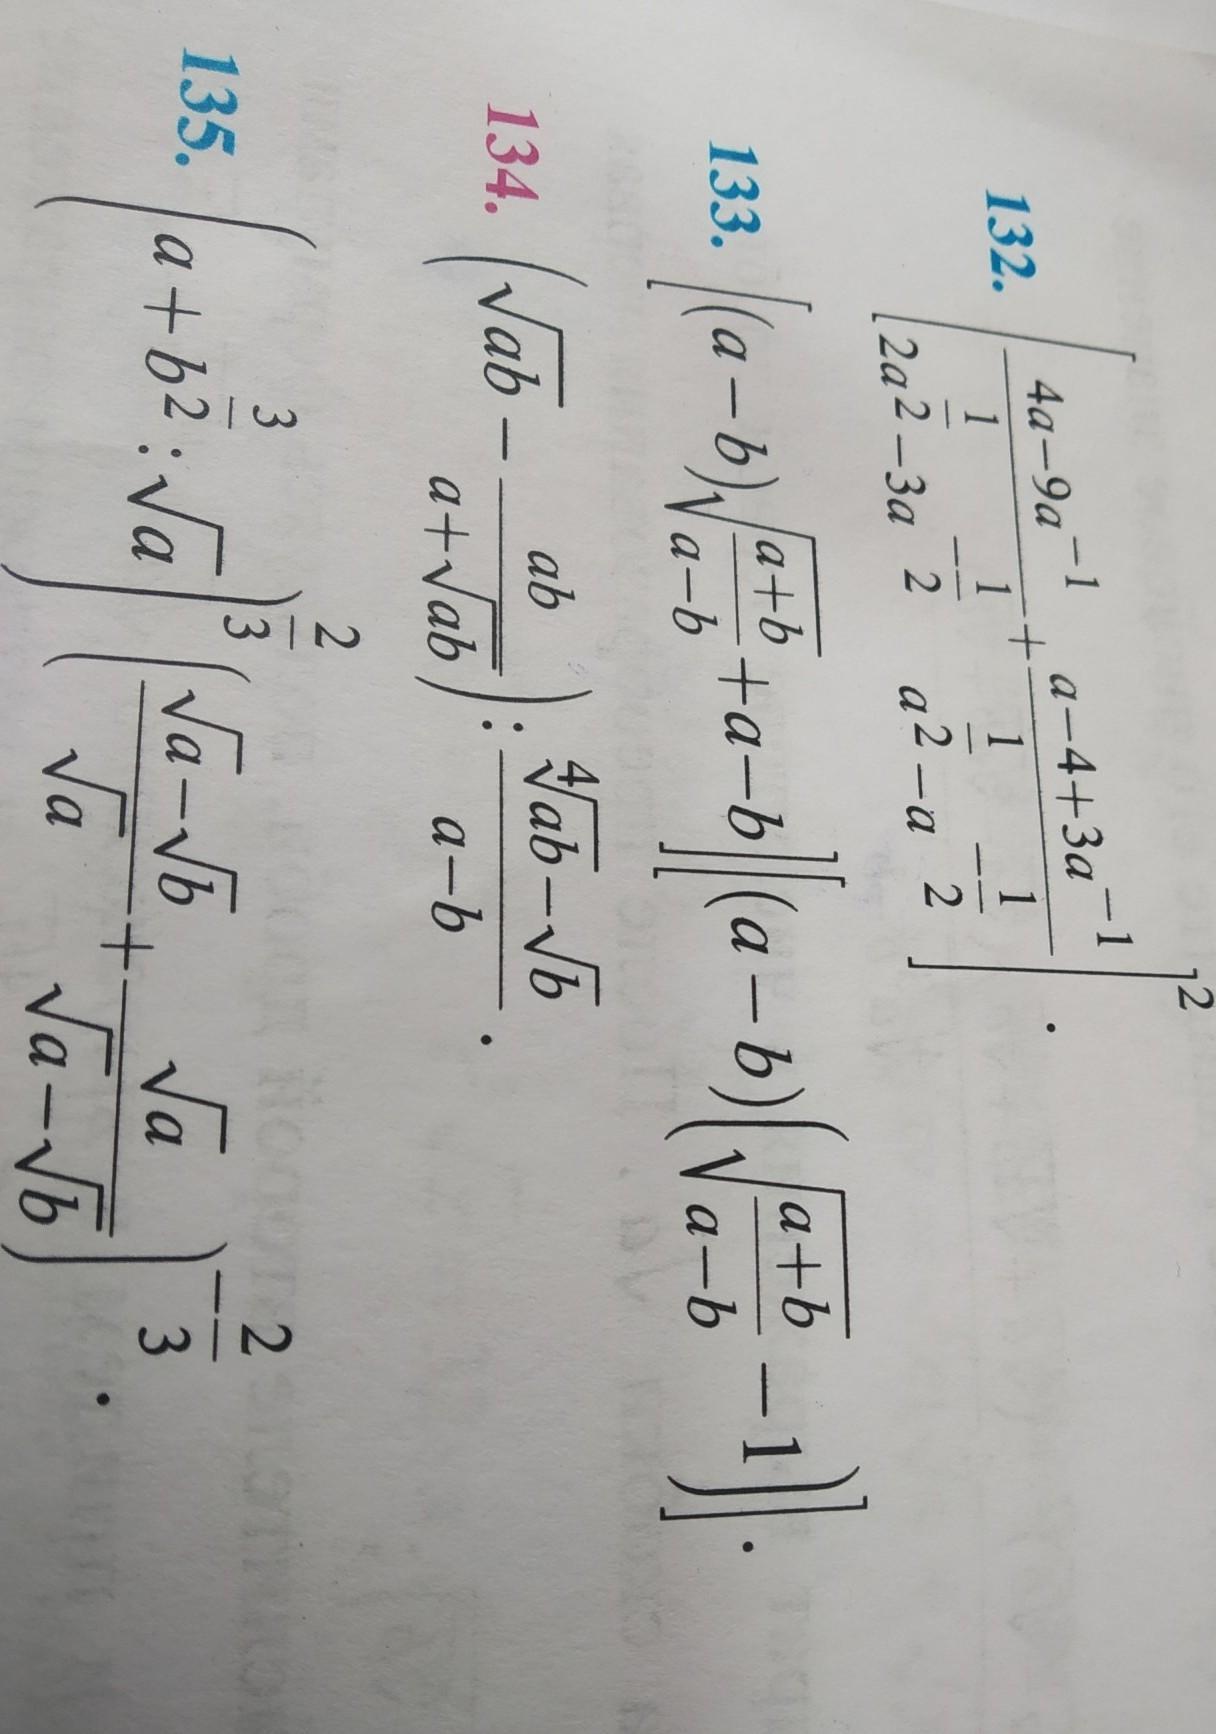 132. [(4a−9a^{−1})/(2a^{1/2}−3a^{−1/2}) + (a−4+3a^{−1})/(a^{1/2}−a^{−1/2})]^2.
133. [(a−b)√((a+b)/(a−b))+a−b][(a−b)(√((a+b)/(a−b))−1)].
134. (√ab − ab/(a+√ab)) : (∜ab−√b)/(a−b).
135. (a+b^{3/2} : √a)^{2/3} ((√a−√b)/√a + √a/(√a−√b))^{−2/3}.